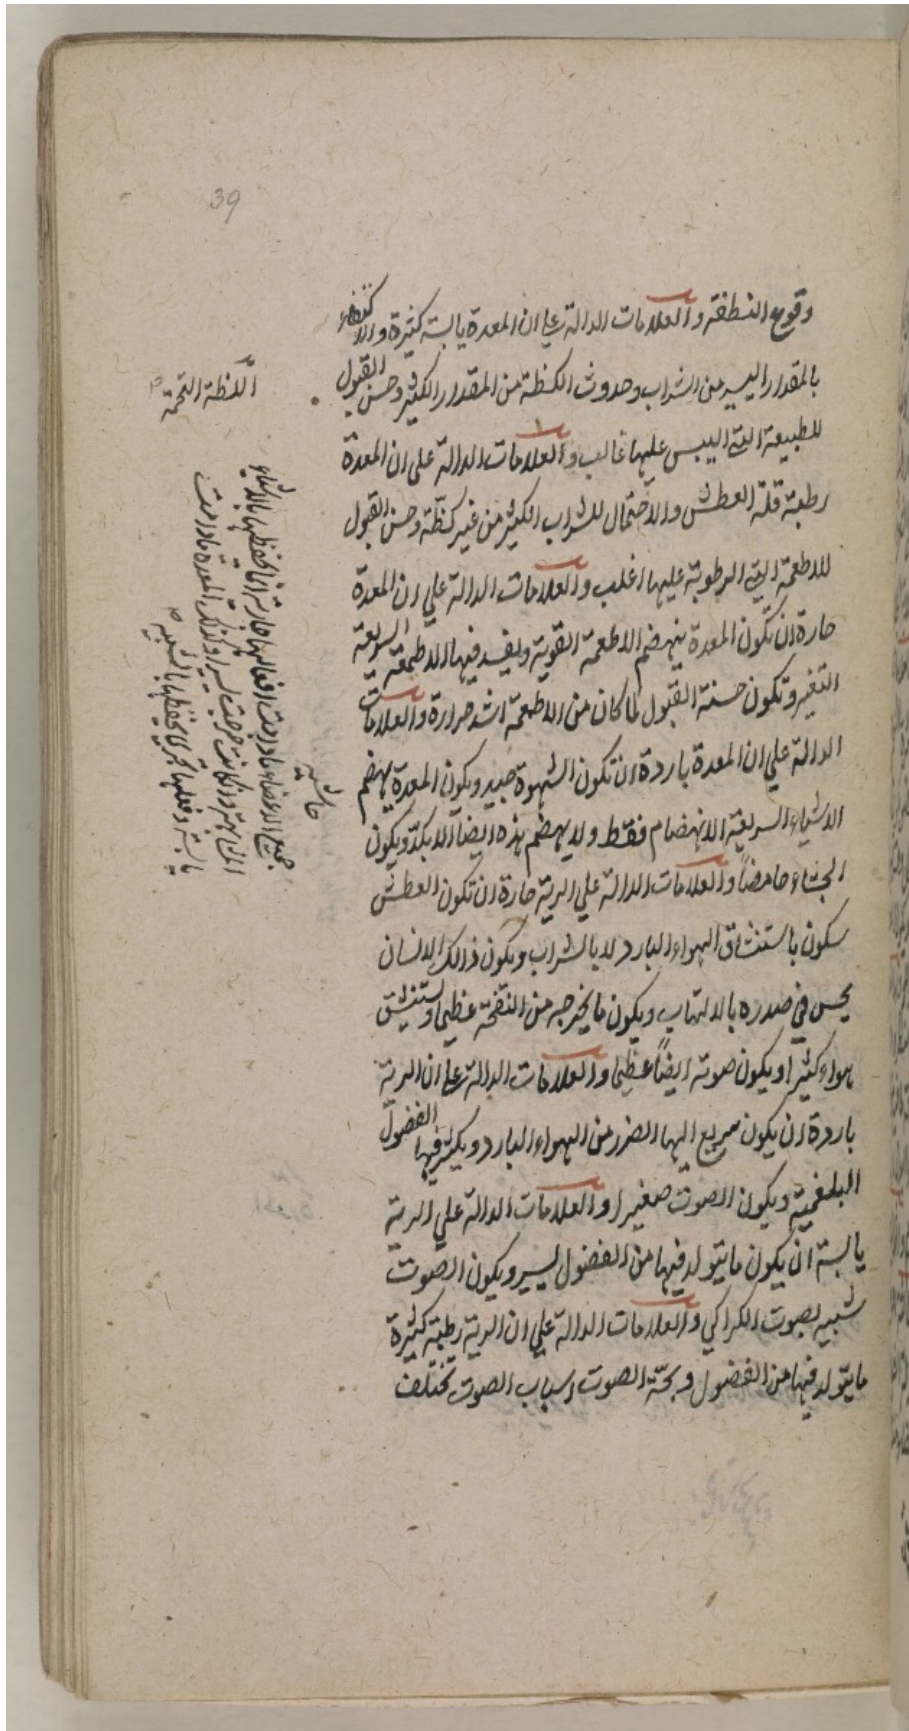 39
وقوع النطفة والعلامات الدالة على ان المعدة يابسة كثيرة والاكتفاء
بالمقدار اليسير من الشراب وحدوث الكظة من المقدار الكثير وحسن القبول
للطبيعة التي اليبس عليها غالب والعلامات الدالة على ان المعدة
رطبة قلة العطش والاحتمال للشراب الكثير من غير كظة وحسن القبول
للاطعمة التي الرطوبة عليها اغلب والعلامات الدالة علي ان المعدة
حارة ان تكون المعدة ينهضم الاطعمة القوية ويفسد فيها الاطعمة السريعة
التغير وتكون حسنة القبول لما كان من الاطعمة اشد حرارة والعلامات
الدالة علي ان المعدة باردة ان تكون الشهوة جيد ويكون المعدة يهضم
الاشياء السريعة الانهضام فقط ولا يهضم هذه ايضاً الا بكد ويكون
الجشاء حامضاً والعلامات الدالة علي الرية حارة ان تكون العطش
سكون باستنشاق الهواء البارد لا بالشراب ويكون ذالك الانسان
يحس في صدره بالالتهاب ويكون ما يخرجه من النفخة عظيما ويستنشق
هواء كثيرا ويكون صوته ايضاً عظيما والعلامات الدالة على ان الرية
باردة ان يكون سريع اليها الضرر من الهواء البارد ويكثر فيها الفضول
البلغمية ويكون الصوت صغيرا والعلامات الدالة علي الرية
يابسة ان يكون ما يتولد فيها من الفضول يسير ويكون الصوت
شبيه بصوت الكراكي والعلامات الدالة علي ان الرية رطبة كثرة
ما يتولد فيها من الفضول وبحة الصوت اسباب الصوت تختلف
الكظة التخمة
حاشيه
جميع الاعضاء ما دامت افعالها جارية انما تحفظها بالاشياء